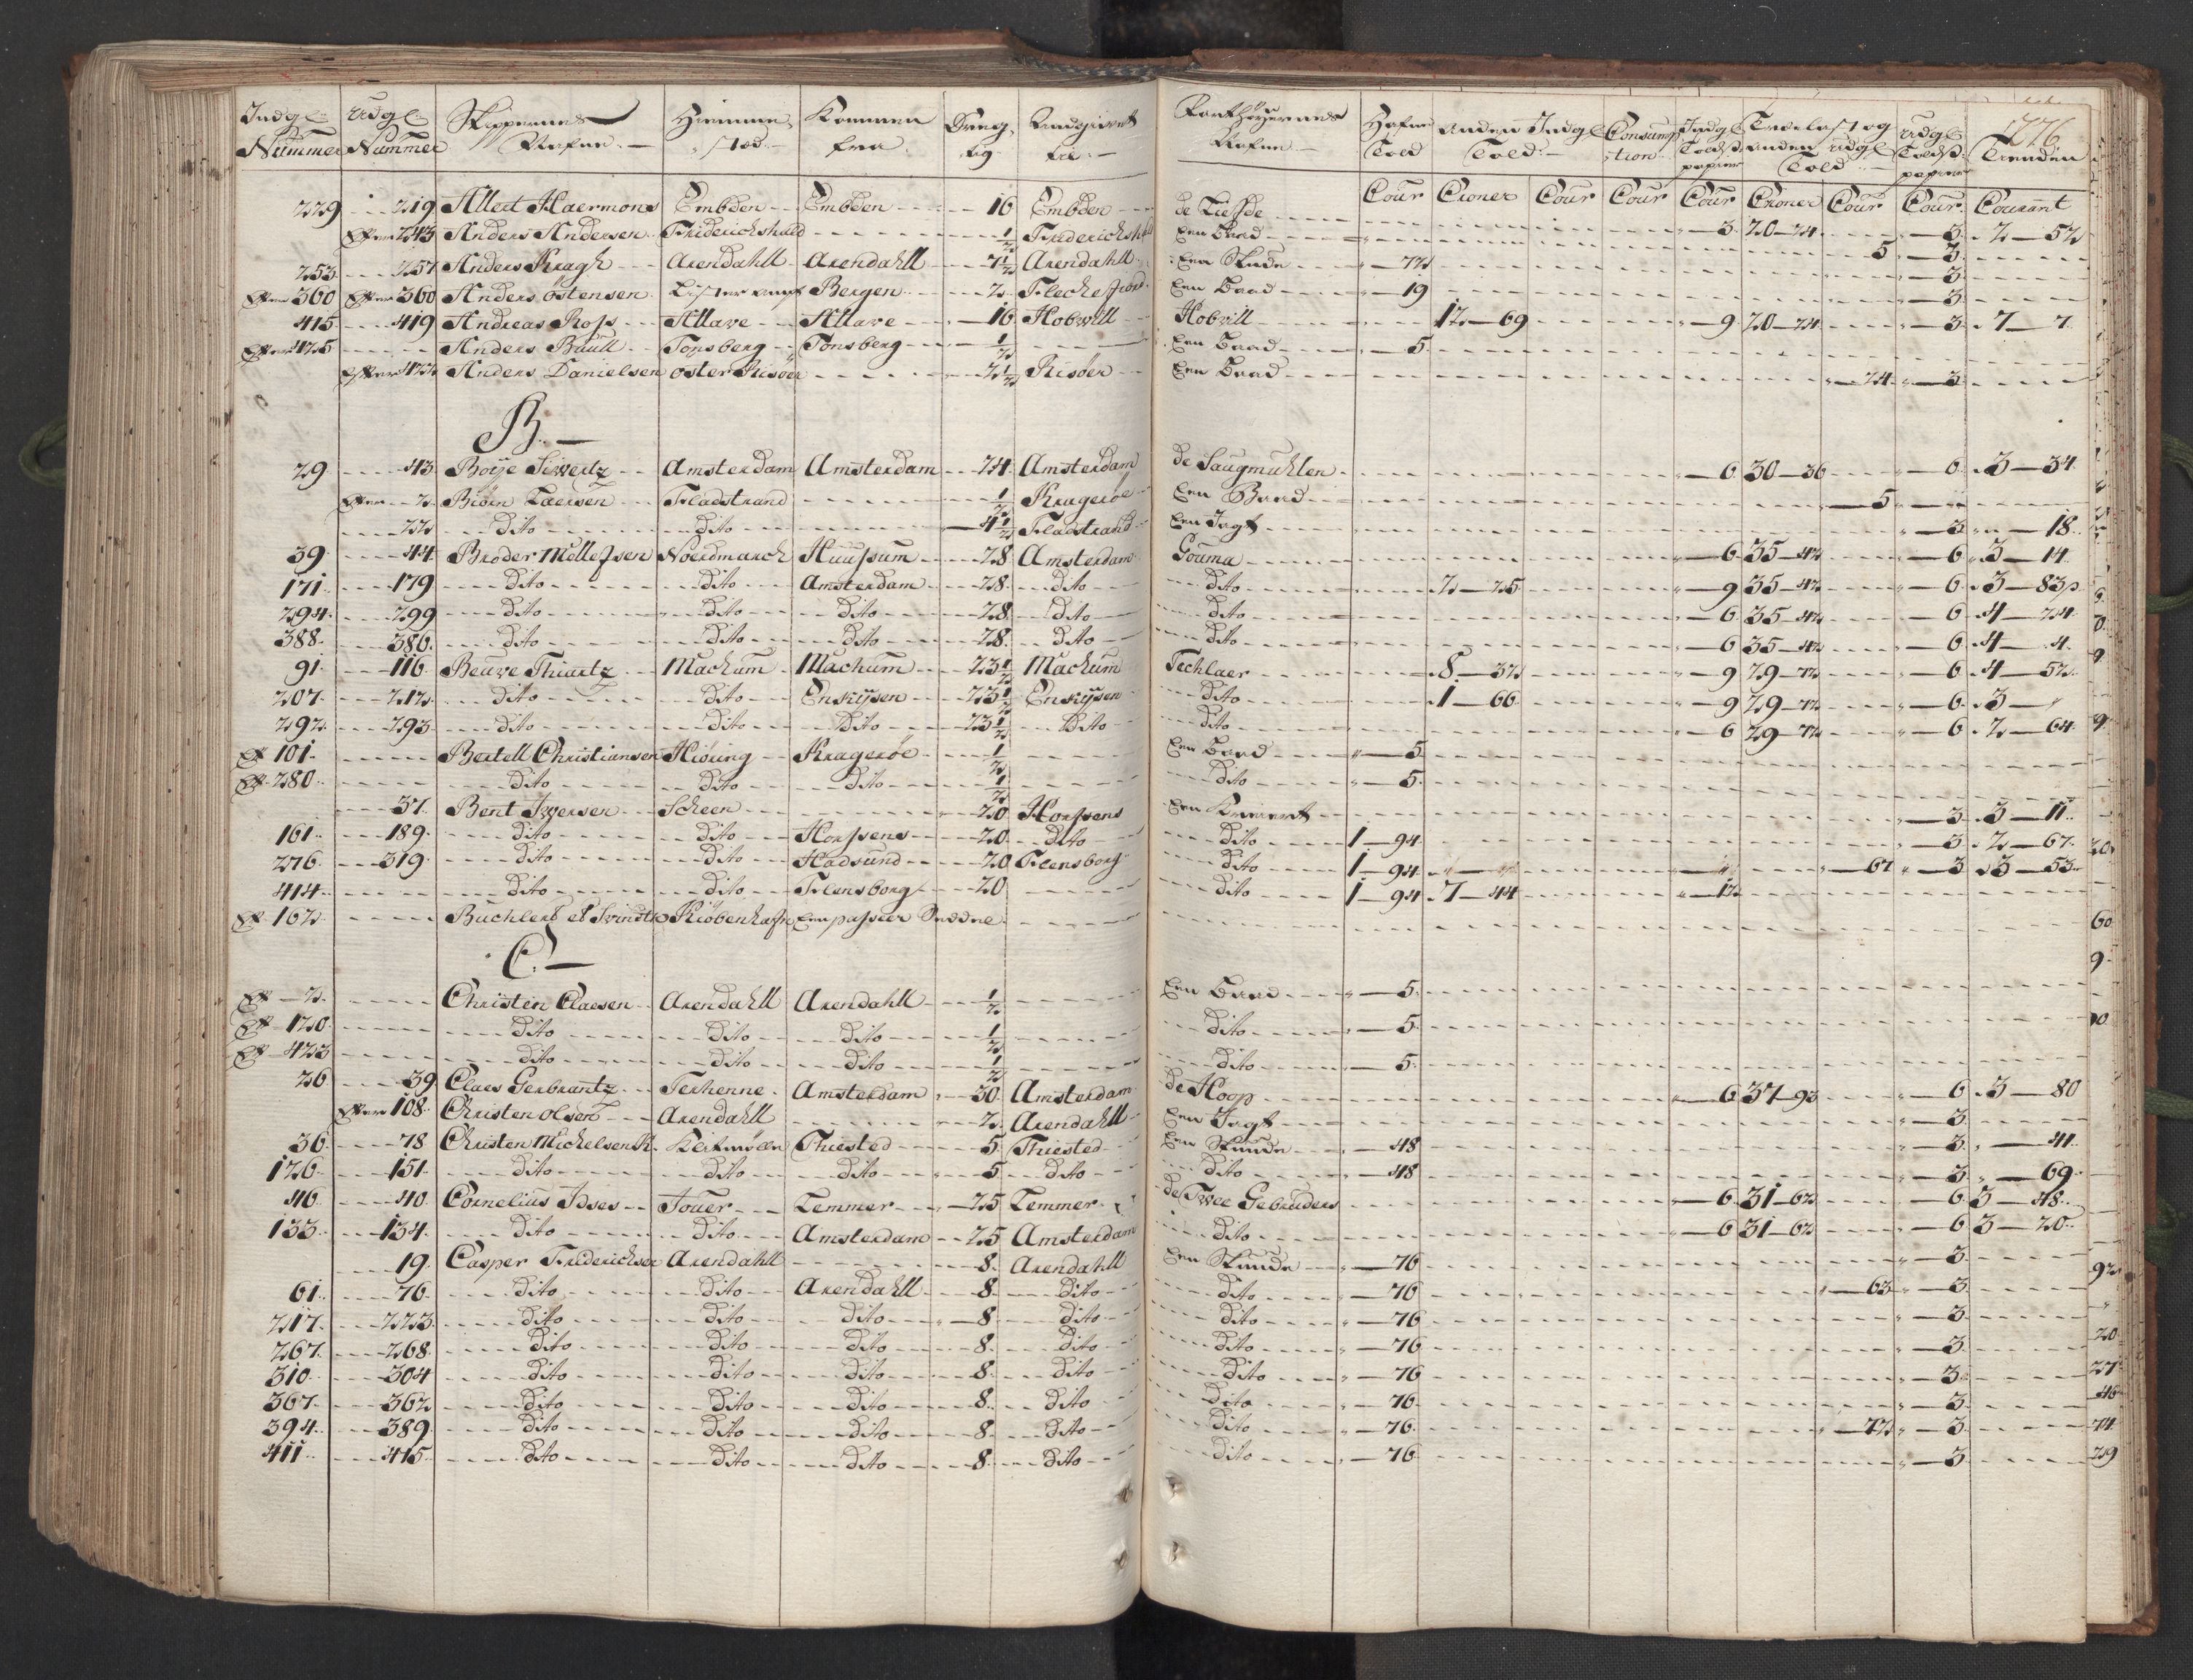 Indg: Nummer Udg: Nummer Skippernes Nafne Hiemme sted Kommen fra Dreg tig Fartøyernes Nafne Hafne Told Anden Indg Told Consump tion Indg Told papier Trælast og anden udg Told Udg Told papier Tienden 776
Cour Croner Cour Cour Cour Croner Cour Cour Courant
229 219 Allert Haermons Embden Embden 16 Embden de Liefde 3 20 24 3 2 52
Efter 243 Anders Andersen Friderichshald 1/2 Friderichshald Een Baad 5 3
253 257 Anders Kragh Arendahll Arendahll 7 1/2 Arendahll Een Skude 72 3
Efter 360 Efter 360 Anders Østensen Lister amt Bergen 2 Fleckefiord Een Baad 19 3
415 419 Andreas Ross Allare Allare 16 Hobvill Hobvill 12 69 9 20 24 3 7 7
Efter 425 Anders Baull Tonsberg Tonsberg 1/2 Een Baad 5
Efter 422 Anders Danielsen Oster Risöer 2 1/2 Risöer Een Baad 24 3
B.
29 43 Boye Siwertz Amsterdam Amsterdam 24 Amsterdam de Saugmuhlen 6 30 36 6 3 34
Efter 2 Biörn Laersen Fladstrand 1/2 Krageröe Een Baad 5
22 Dito Dito 4 1/2 Fladstrand Een Jagt 3 18
39 44 Broder Mellefsen Noerdmarch Huussum 28 Amsterdam Gouma 6 35 42 6 3 14
171 179 Dito Dito Amsterdam 28 Dito Dito 2 25 9 35 42 6 3 83
294 299 Dito Dito Dito 28 Dito Dito 6 35 42 6 4 24
388 386 Dito Dito Dito 28 Dito Dito 6 35 42 6 4 4
91 116 Beuwe Thiartz Machum Machum 23 1/2 Machum Techlaer 8 32 9 29 72 6 4 52
207 212 Dito Dito Enkysen 23 1/2 Enskysen Dito 1 66 9 29 72 6 3
292 293 Dito Dito Dito 23 1/2 Dito Dito 6 29 72 6 2 64
Eft 101 Bertell Christiansen Hiöring Krageröe 1/2 Een Baad 5
Eft 280 Dito Dito Dito 1/2 Dito 5
37 Bent Iwersen Scheen 20 Horssens Een Kreiert 3 3 11
161 189 Dito Dito Horssens 20 Dito Dito 1 94 3 2 67
276 319 Dito Dito Hadsund 20 Flensborg Dito 1 94 67 3 3 53
414 Dito Dito Flensborg 20 Dito 1 94 7 44 12
Eft 162 Buchler et Kiöbenhafn Een passeer Seddel
C.
Eft 2 Christen Claesen Arendahll Arendahll 1/2 Een Baad 5
Eft 120 Dito Dito Dito 1/2 Dito 5
Eft 423 Dito Dito Dito 1/2 Dito 5
26 39 Claes Gerbrantz Terhenne Amsterdam 30 Amsterdam de Hoop 6 37 93 6 3 80
Efter 108 Christen Olsen Arendahll 2 Arendahll Een Jagt 3
36 78 Christen Michelsen K. Klitmøller Thiested 5 Thiested Een Skude 48 3 41
126 151 Dito Dito Dito 5 Dito Dito 48 3 69
46 40 Cornelius Idses Jouer Lemmer 25 Lemmer de Twee Gebruders 6 31 62 6 3 48
133 134 Dito Dito Amsterdam 25 Amsterdam Dito 6 31 62 6 3 20
19 Casper Friderichsen Arendahll 8 Arendahll Een Skude 76 3
61 76 Dito Dito Arendahll 8 Dito Dito 76 63 3
217 223 Dito Dito Dito 8 Dito Dito 76 3
267 268 Dito Dito Dito 8 Dito Dito 76 3
310 304 Dito Dito Dito 8 Dito Dito 76 3
367 362 Dito Dito Dito 8 Dito Dito 76 3
394 389 Dito Dito Dito 8 Dito Dito 76 72 3
411 415 Dito Dito Dito 8 Dito Dito 76 3